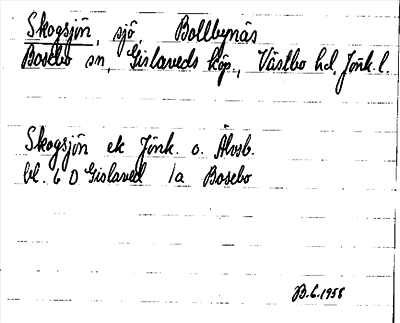 Skogsjön, sjö, Bollbynäs
Bosebo sn, Gislaveds köp., Västbo hd. Jönk. l.
Skogsjön ek Jönk. o. Älvsb.
bl. 6 D Gislaved 1a Bosebo
B.6.1958